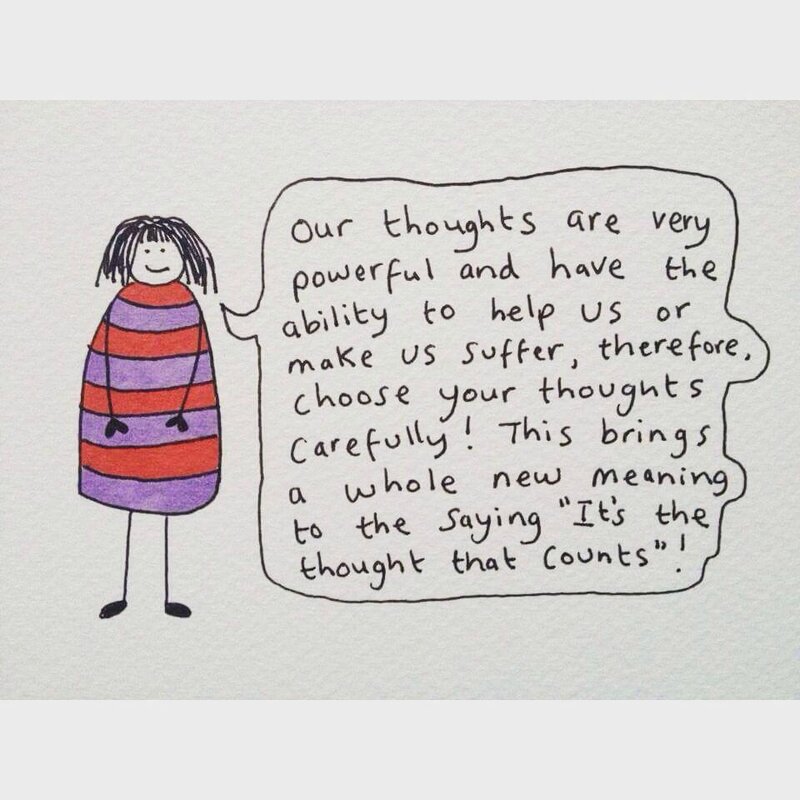 Our thoughts are very
powerful and have the
ability to help us or
make us suffer, therefore,
choose your thoughts
carefully! This brings
a whole new meaning
to the saying "It's the
thought that counts"!